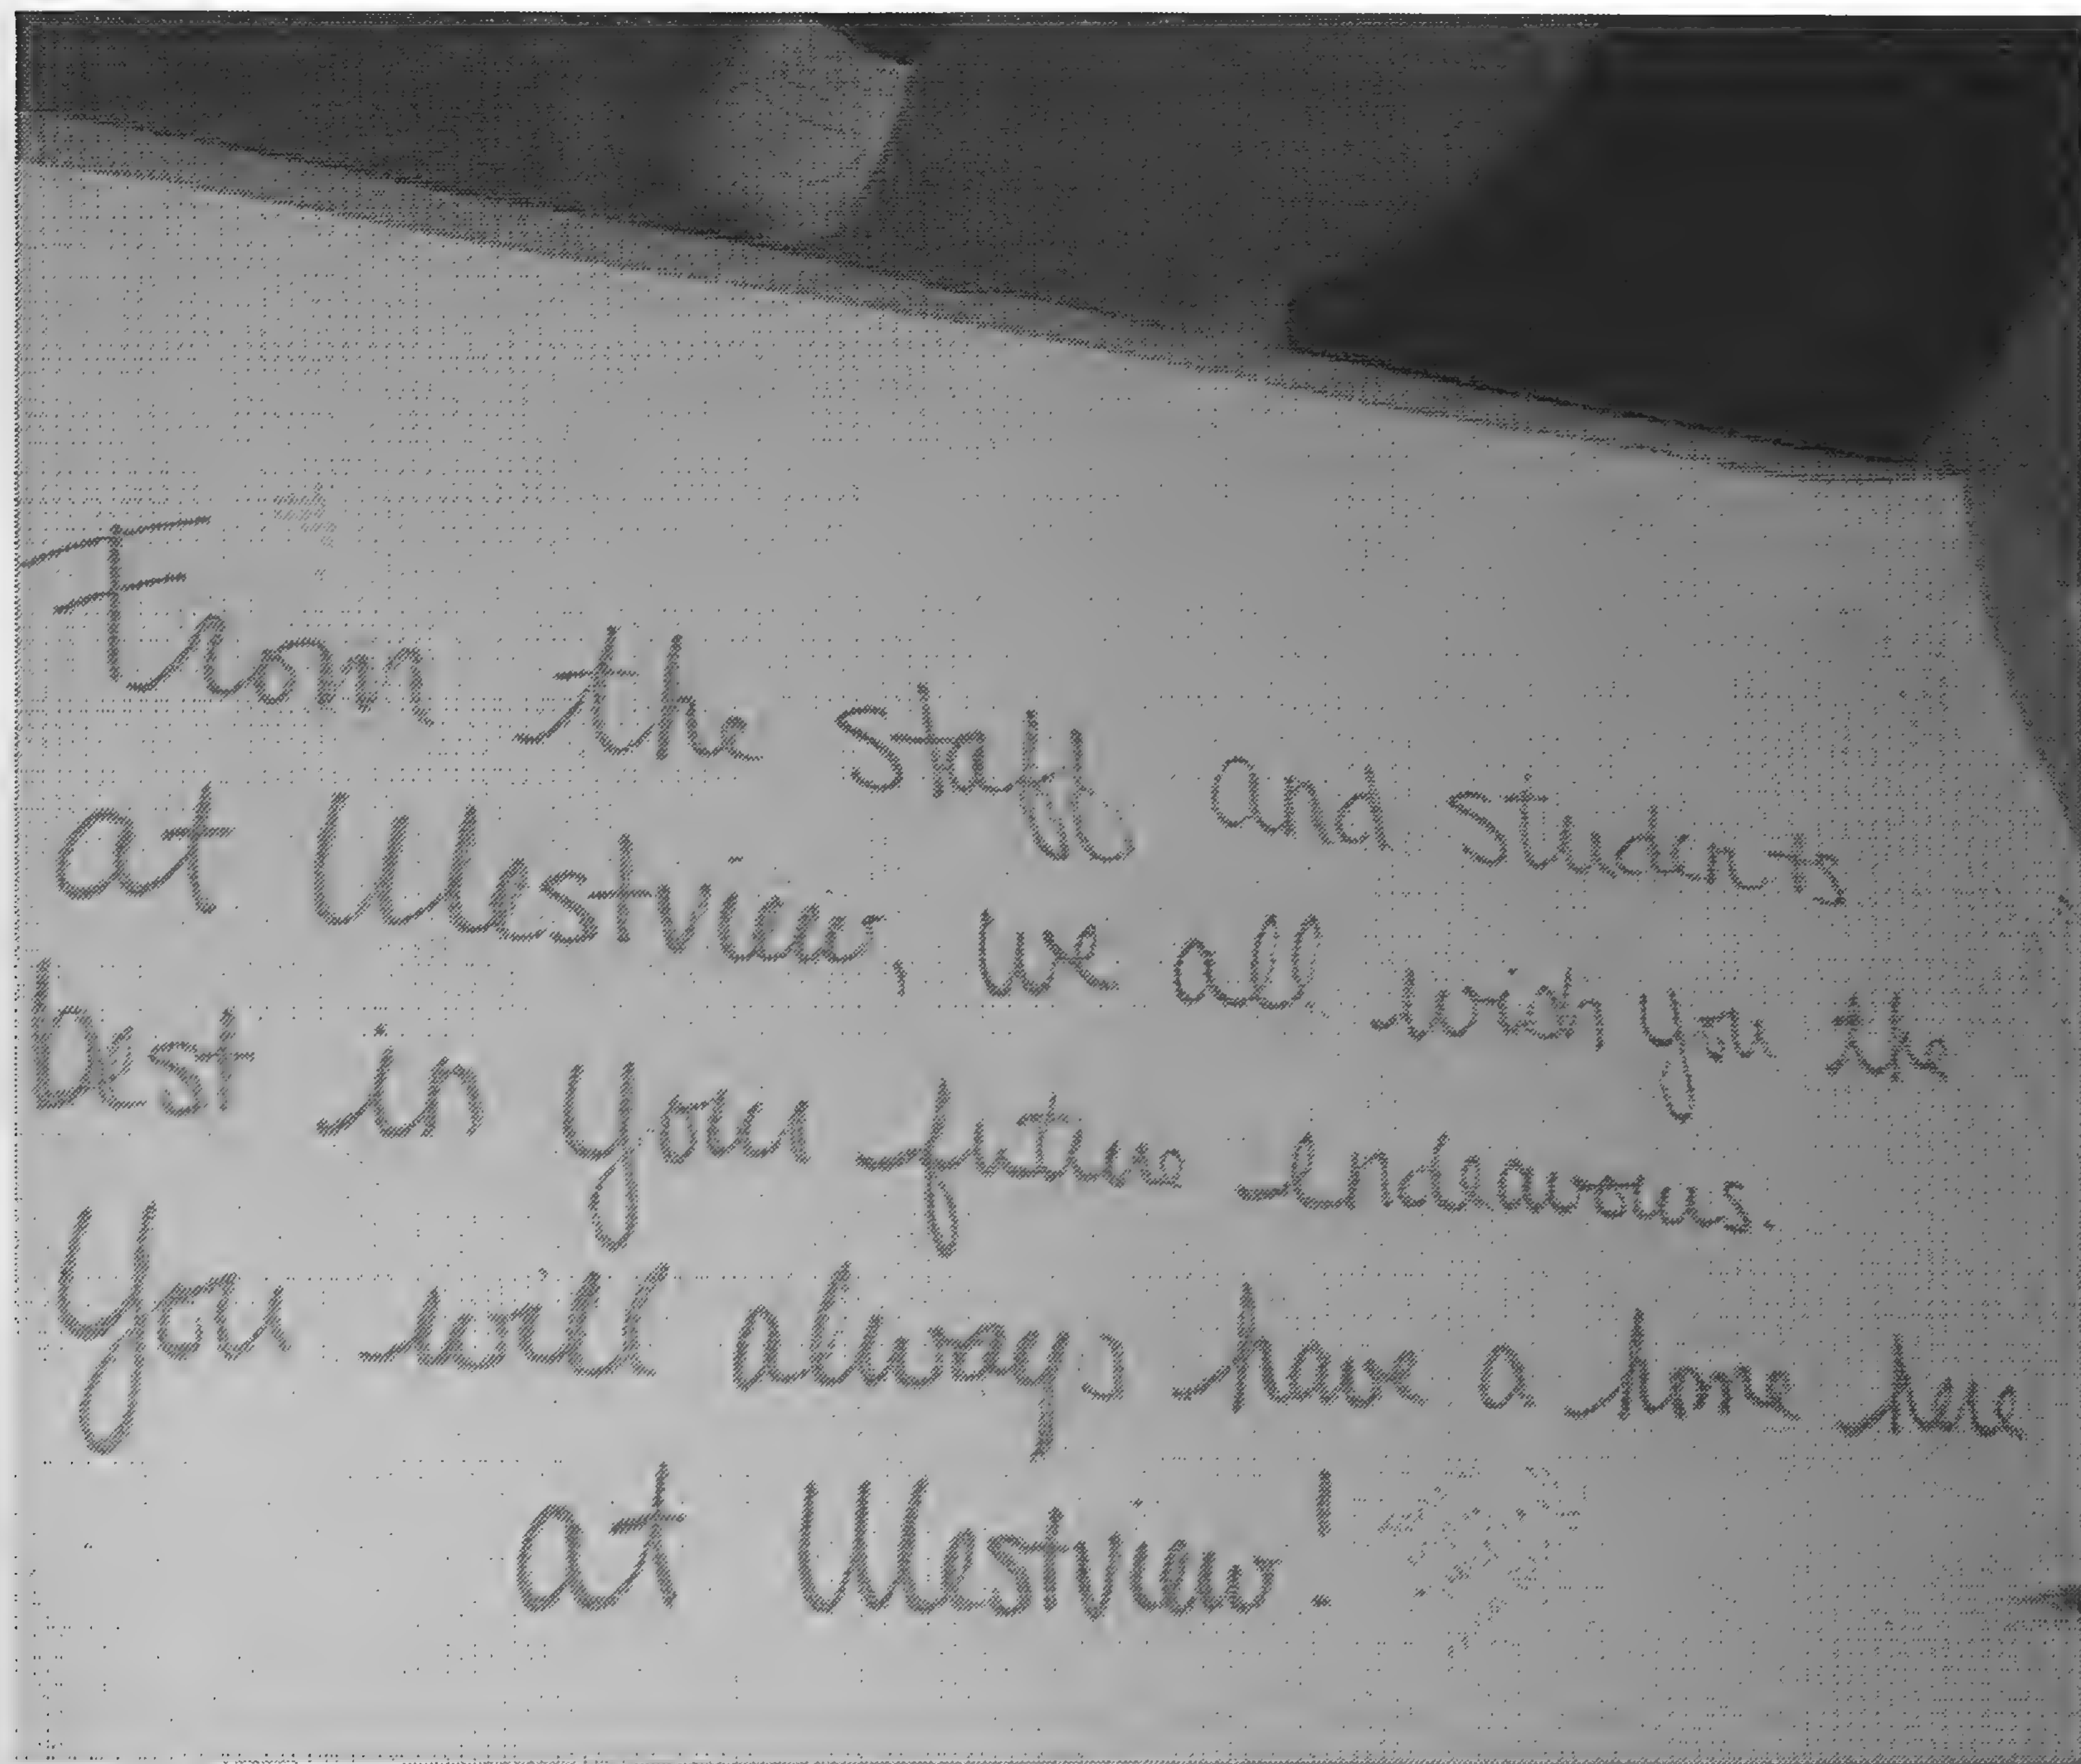 From the staff and students
at Westview, we all wish you the
best in your future endeavours.
You will always have a home here
at Westview!